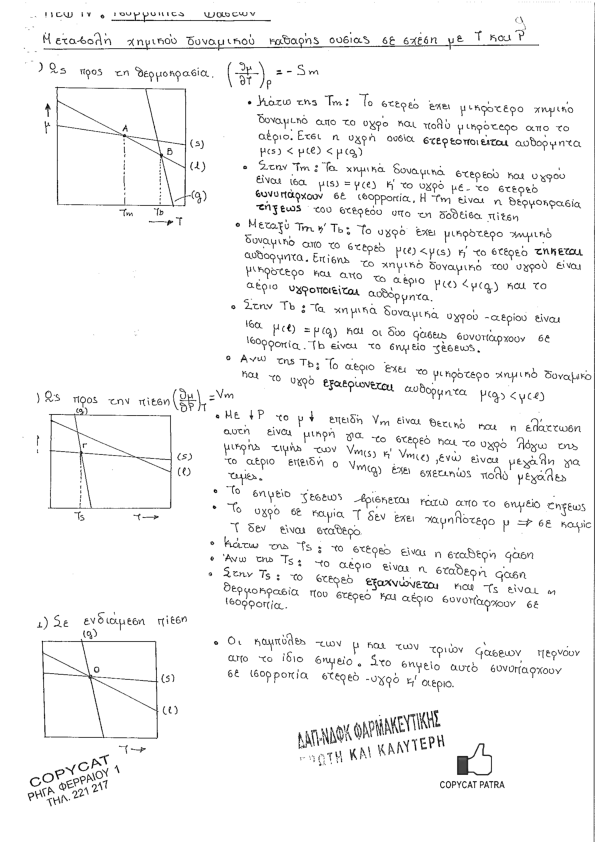 9
Ισορροπίες Φάσεων
Μεταβολή χημικού δυναμικού καθαρής ουσίας σε σχέση με T και P
) Ως προς τη θερμοκρασία. (∂μ/∂T)p = - Sm
μ
A
B
(s)
(l)
(g)
Tm Tb → T
• Κάτω της Tm : Το στερεό έχει μικρότερο χημικό
δυναμικό απο το υγρό και πολύ μικρότερο απο το
αέριο. Ετσι η υγρή ουσία στερεοποιείται αυθόρμητα
μ(s) < μ(l) < μ(g)
• Στην Tm : Τα χημικά δυναμικά στερεού και υγρού
είναι ίσα μ(s) = μ(l) κ' το υγρό με το στερεό
συνυπάρχουν σε ισορροπία. Η Tm είναι η θερμοκρασία
τήξεως του στερεού υπο τη δοθείσα πίεση
• Μεταξύ Tm κ' Tb : Το υγρό έχει μικρότερο χημικό
δυναμικό απο το στερεό μ(l) < μ(s) κ' το στερεό τήκεται
αυθόρμητα. Επίσης το χημικό δυναμικό του υγρού είναι
μικρότερο και απο το αέριο μ(l) < μ(g) και το
αέριο υγροποιείται αυθόρμητα.
• Στην Tb : Τα χημικά δυναμικά υγρού - αερίου είναι
ίσα μ(l) = μ(g) και οι δυο φάσεις συνυπάρχουν σε
ισορροπία. Tb είναι το σημείο ζέσεως.
• Ανω της Tb : Το αέριο έχει το μικρότερο χημικό δυναμικό
και το υγρό εξαερώνεται αυθόρμητα μ(g) < μ(l)
) Ως προς την πίεση (∂μ/∂P)T = Vm
(g)
Γ
(s)
(l)
Ts T →
• Με ↓P το μ ↓ επειδή Vm είναι θετικό και η ελάττωση
αυτή είναι μικρή για το στερεό και το υγρό λόγω της
μικρής τιμής των Vm(s) κ' Vm(l), ενώ είναι μεγάλη για
το αέριο επειδή ο Vm(g) έχει σχετικώς πολύ μεγάλες
τιμές.
• Το σημείο ζέσεως βρίσκεται κάτω απο το σημείο τήξεως
• Το υγρό σε καμία T δεν έχει χαμηλότερο μ ⇒ σε καμία
T δεν είναι σταθερό
• Κάτω της Ts : το στερεό είναι η σταθερή φάση
• Άνω της Ts : το αέριο είναι η σταθερή φάση
• Στην Ts : το στερεό εξαχνώνεται και Ts είναι η
θερμοκρασία που στερεό και αέριο συνυπάρχουν σε
ισορροπία.
) Σε ενδιάμεση πίεση
(g)
O
(s)
(l)
T →
• Οι καμπύλες των μ και των τριών φάσεων περνούν
απο το ίδιο σημείο. Στο σημείο αυτό συνυπάρχουν
σε ισορροπία στερεό - υγρό κ' αέριο.
ΔΑΠ-ΝΔΦΚ ΦΑΡΜΑΚΕΥΤΙΚΗΣ
ΠΡΩΤΗ ΚΑΙ ΚΑΛΥΤΕΡΗ
COPYCAT
ΡΗΓΑ ΦΕΡΡΑΙΟΥ 1
ΤΗΛ. 221 217
COPYCAT PATRA